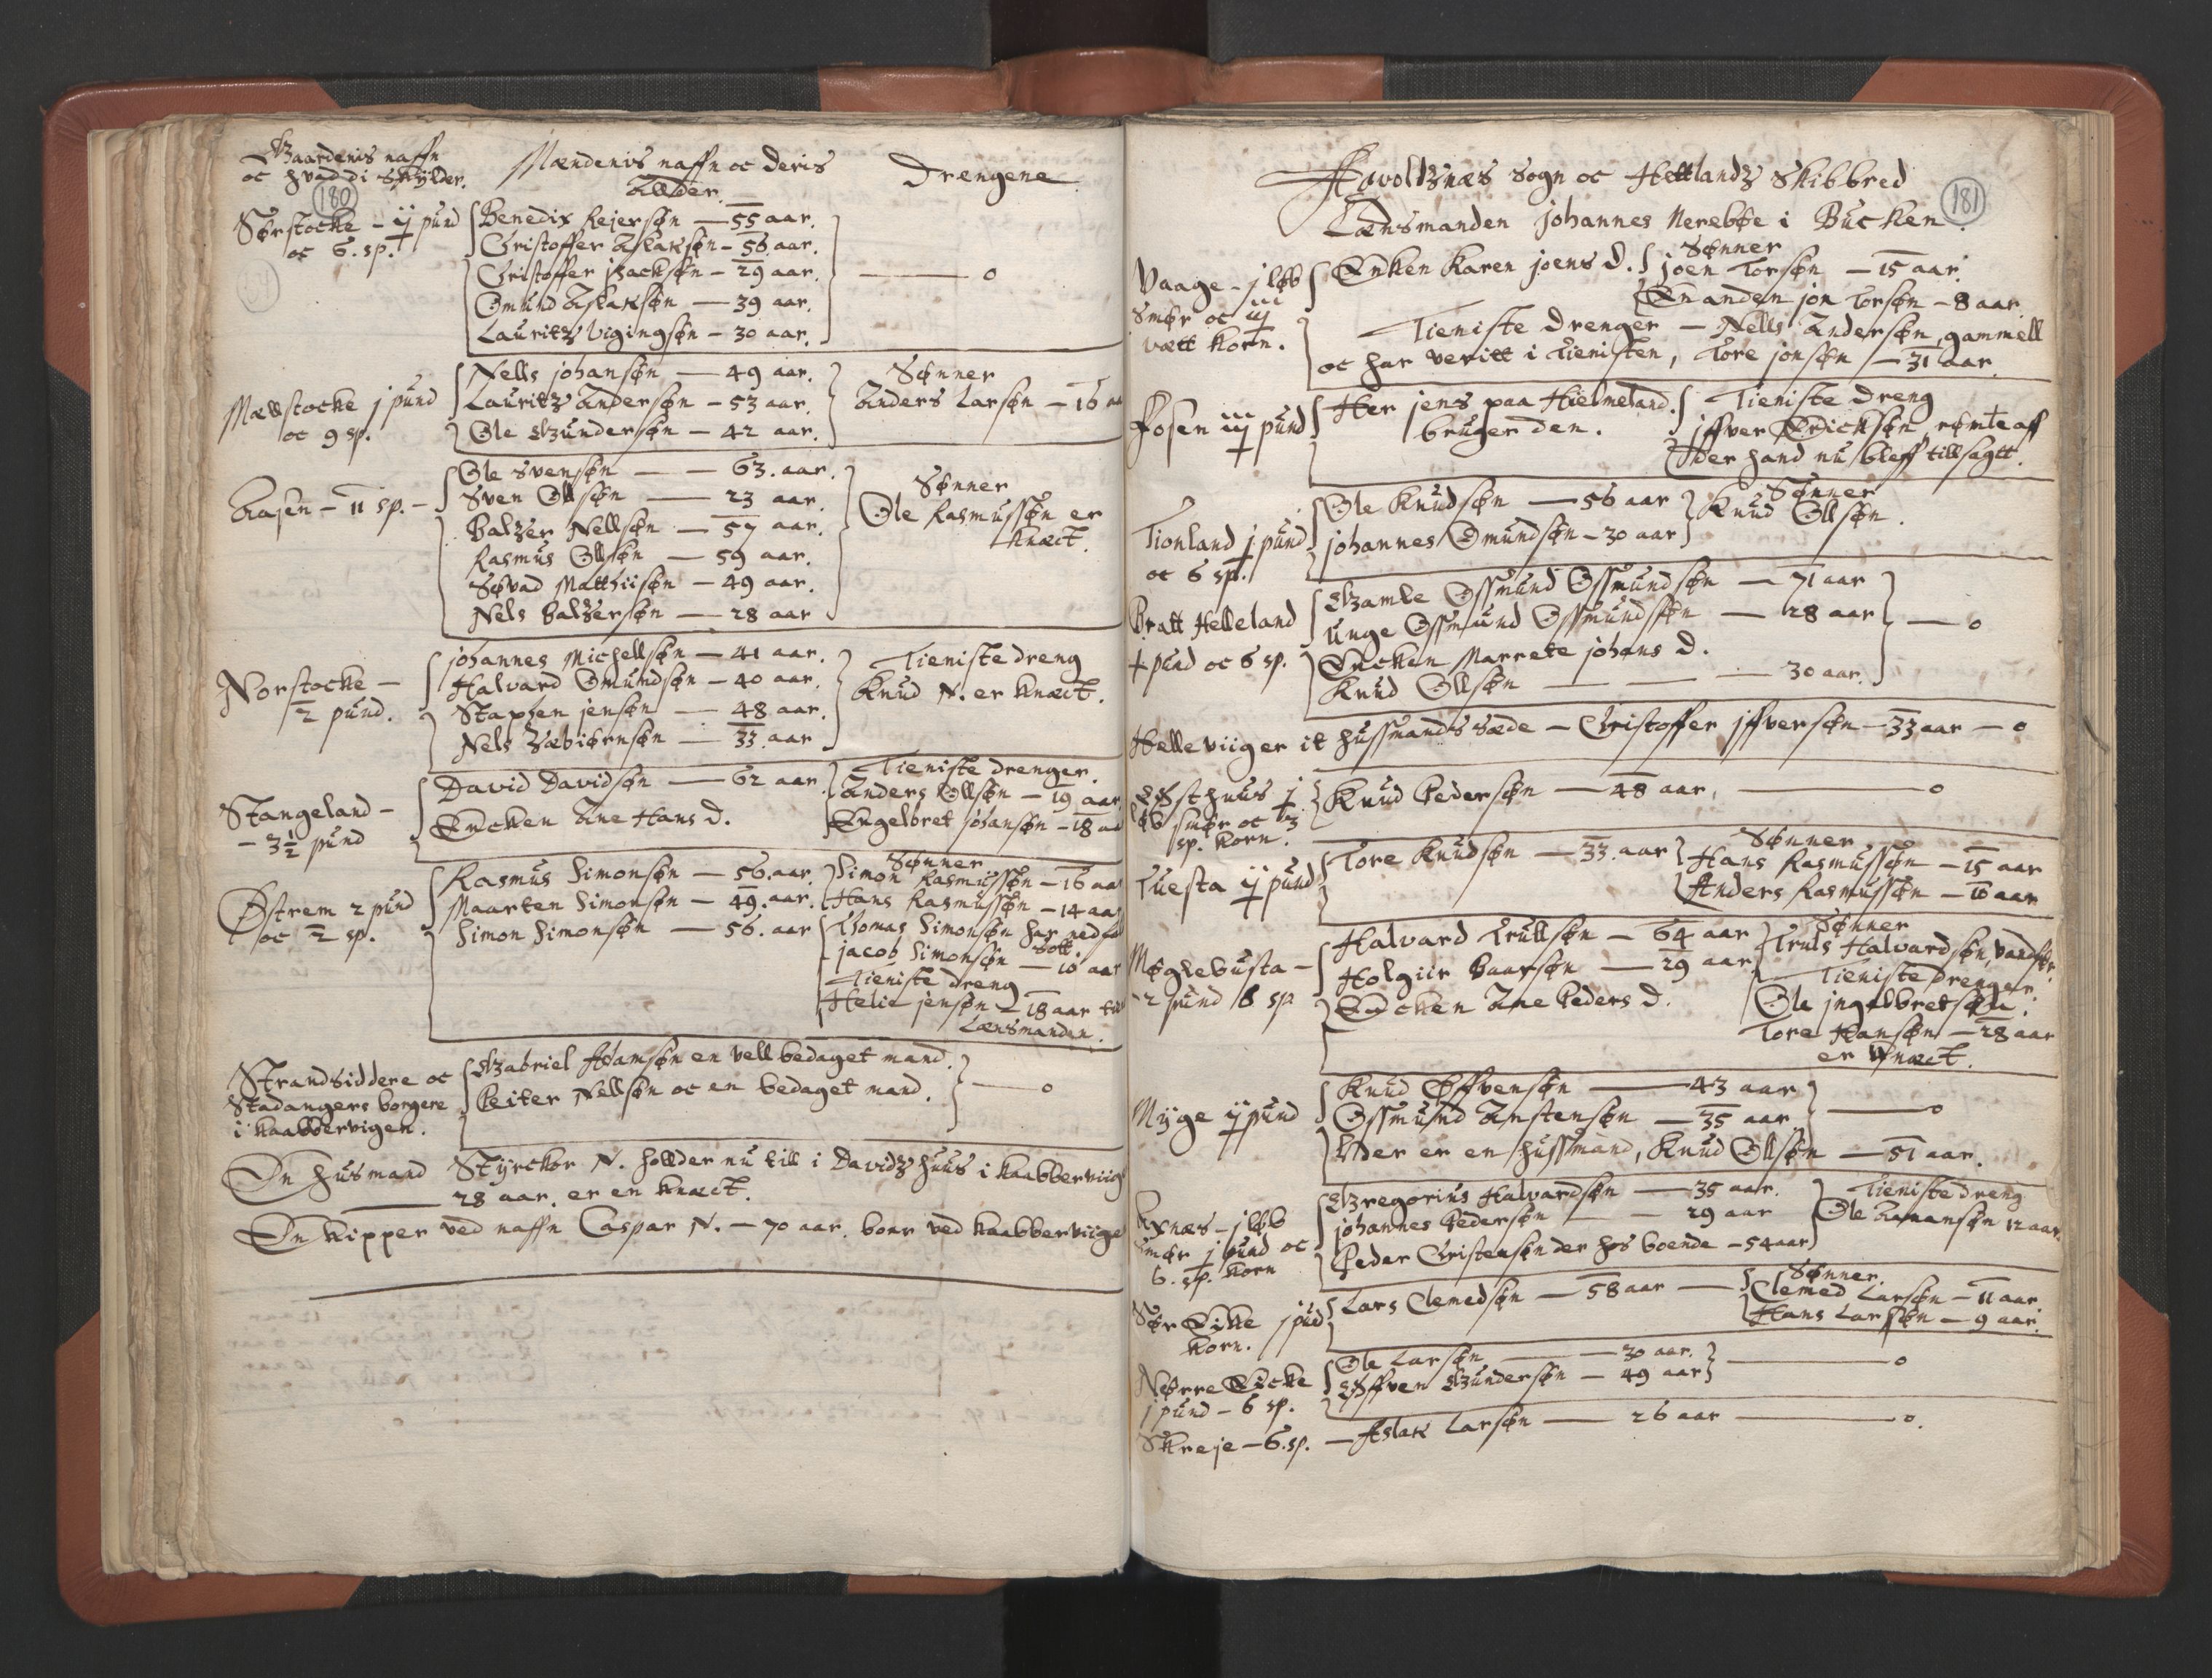 Gaardenis naffn
oc hvad di skylder.
Mændenis naffn oc deris
Allder.
Drengene.
180
Sørstocke - ij pund
oc 6. sp.
Benedix Rejersøn — 55 aar.
Christoffer Aslaksøn - 56 aar.
Christoffer jsacksøn - 29 aar. — 0
Omund Aslaksøn — 39 aar.
Lauritz Vigingsøn - 30 aar.
Mellstocke j pund
oc 9 sp.
Nells johansøn — 49 aar.
Lauritz Andersøn - 53 aar.
Ole Gundersøn - 42 aar.
Sønner
Anders Larsøn - 16 aa
Aasen - 11 sp. -
Ole Svensøn — 63. aar.
Sven Ollsøn — 23 aar.
Balzer Nellsøn — 57 aar.
Rasmus Ollsøn — 59 aar.
Søvad Matthiisøn - 49 aar.
Nels Balzersøn — 28 aar
Sønner
Ole Rasmussøn er
knect.
Norstocke -
2 pund.
johannes Michellsøn - 41 aar.
Halvard Omundsøn - 40 aar.
Staphen jensøn — 48 aar.
Nels Sæbiørnsøn — 33. aar
Tieniste dreng
Knud N. er knect.
Stangeland -
- 3½ pund
David Davidsøn — 62 aar.
Encken Ane Hans D.
Tieniste drenger.
Anders Ollsøn - 19 aar
Engelbret johansøn - 18 aa
Østrem 2 pund
oc 2 sp.
Rasmus Simonsøn — 56. aar.
Maarten Simonsøn - 49. aar.
Simon Simonsøn — 56. aar
Sønner
Simon Rasmussøn - 16 aa
Hans Rasmussøn - 14 aa
Thomas Simonsøn har nedfa
sott.
jacob Simonsøn — 10 aar
Tieniste dreng
Helie jensøn - 18 aar
Lænsmanden.
Strandsiddere oc
Stadangers borgere
i kaabbervigen.
Gabriel Adamsøn en vell bedaget mand.
Peiter Nellsøn oc en bedaget mand. — 0
En husmand Styrckor N. holder nu till i Davidz huus i kaabberviig
— 28 aar. er en knect.
En kipper ved naffn Caspar N. - 70 aar. boer ved kaabberviige
181
Avoldsnæs sogn oc Hettlandz Skibbred
Lænsmanden johannes Nerebøe i Bucken.
Vaage - j løb
smør oc iij
vætt korn.
Enken Karen joens D.
Sønner
joen Torsøn — 15 aar.
En anden jon Torsøn - 8 aar.
Tieniste drenger — Nells Andersøn, gammell
oc har veritt i tienisten, Tore jonsøn — 31 aar.
Fosen iij pund
Her jens paa Hielmeland
bruger den.
Tieniste dreng
jffver Erichsøn rømte aff
der hand nu bleff tillsagtt.
Tionland j pund
oc 6 sp.
Ole Knudsøn — 56 aar
johannes Omundsøn - 30 aar
Sønner
Knud Ollsøn.
Bratt Helleland
pund oc 6 sp.
Gamle Ossmund Ossmundsøn — 71 aar
Unge Ossmund Ossmundssøn — 28 aar — 0
Encken Marrete johans D.
Knud Ollsøn — — — 30 aar.
Helleviig er it hussmands sæde - Christoffer jffversøn - 33 aar — 0
Østhuus j
løb smør oc 3
sp. korn.
Knud Pedersøn — 48 aar, — 0
Tuesta ij pund
Tore Knudsøn — 33. aar
Sønner
Hans Rasmussøn — 15 aar
Anders Rasmussøn — 10 aar
Møglebusta -
- 2 pund 6 sp
Halvard Trullsøn — 64 aar
Holgiir Baarsøn — 29 aar
Encken Ane Peders D.
Sønner
Truls Halvardsøn,
Tieniste drenger.
Ole jngelbretsøn.
Tore Hansøn - 28 aar
er knect.
Myge ij pund
Knud Øffvensøn — 43 aar
Ossmund Anstensøn — 35 aar — 0
Der er en hussmand, Knud Ollsøn — 51 aar.
Rxnæs - j løb
smør j pund oc
6. sp. korn
Gregorius Halvardsøn — 35 aar.
johannes Pedersøn — 29 aar
Peder Christensøn der hos boende - 54 aar
Tieniste dreng
Ole Amansøn 12 aar.
Sør Eike j pud
korn.
Lars Clemedsøn — 58 aar —
Sønner.
Clemed Larsøn — 11 aar.
Hans Larssøn — 9 aar.
Nørre Eicke
j pund - 6 sp.
Ole Larsøn — 30 aar. — 0
Øffven Gundersøn — 49 aar
Skreje - 6. sp. — Aslak Larsøn — 26 aar — 0.